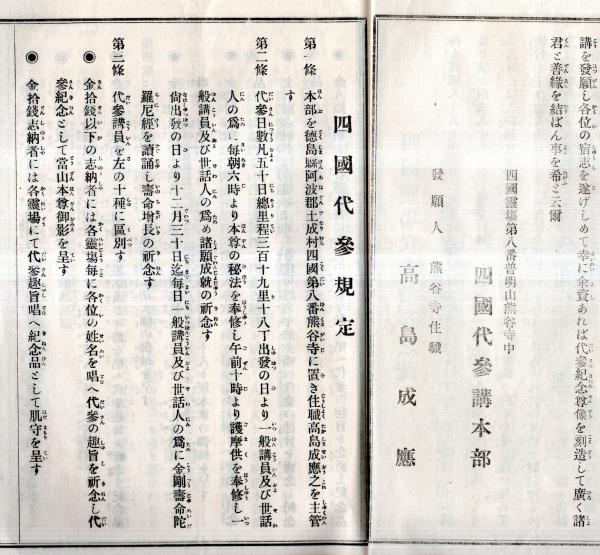 講を發願し各位の宿志を遂げしめて幸に余資あれば代參紀念尊像を刻造して廣く諸
君と善緣を結ばん事を希と云爾
四國靈塲第八番普明山熊谷寺中
四國代參講本部
發願人 熊谷寺住職
高島成應
四國代參規定
第一條 本部を德島縣阿波郡土成村四國第八番熊谷寺に置き住職高島成應之を主管
す
第二條 代參日數凡五十日總里程三百十九里十八丁出發の日より一般講員及び世話
人の爲め每朝六時より本尊の秘法を奉修し午前十時より護摩供を奉修し一
般講員及び世話人の爲め諸願成就の祈念す
尙出發の日より十二月三十日迄每日一般講員及び世話人の爲に金剛壽命陀
羅尼經を讀誦し壽命增長の祈念す
第三條 代參講員を左の十種に區別す
◉ 金拾錢以下の志納者には各靈塲每に各位の姓名を唱へ代參の趣旨を祈念し代
參紀念として當山本尊御影を呈す
◉ 金拾錢志納者には各靈塲にて代參趣旨唱へ紀念品として肌守を呈す